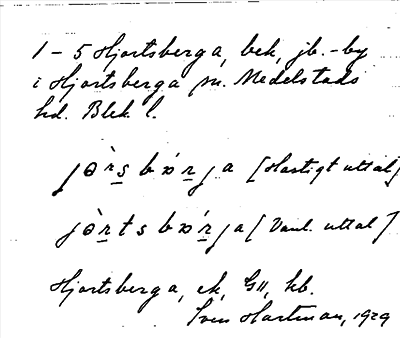 1-5 Hjortsberga, bek, jb.-by
i Hjortsberga sn. Medelstads
hd. Blek. l.
jɵ̀rsbɷ́rja [Hastigt uttal]
jɵ̀rtsbɷ́rja [Vanl. uttal]
Hjortsberga, ek, GII, kb.
Sven Hartman, 1929